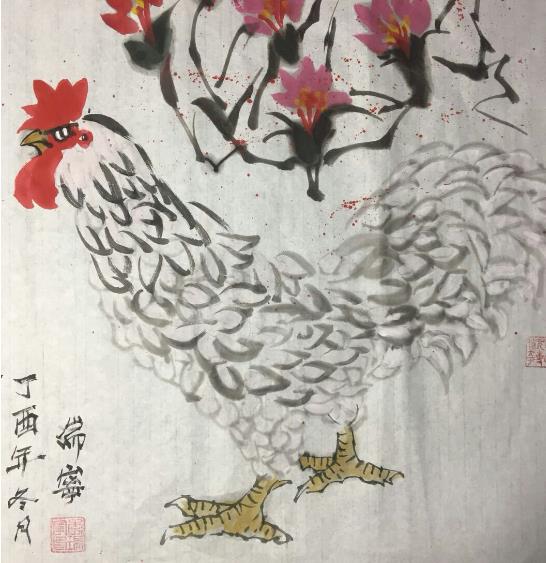 丁酉年冬月
瑞寧